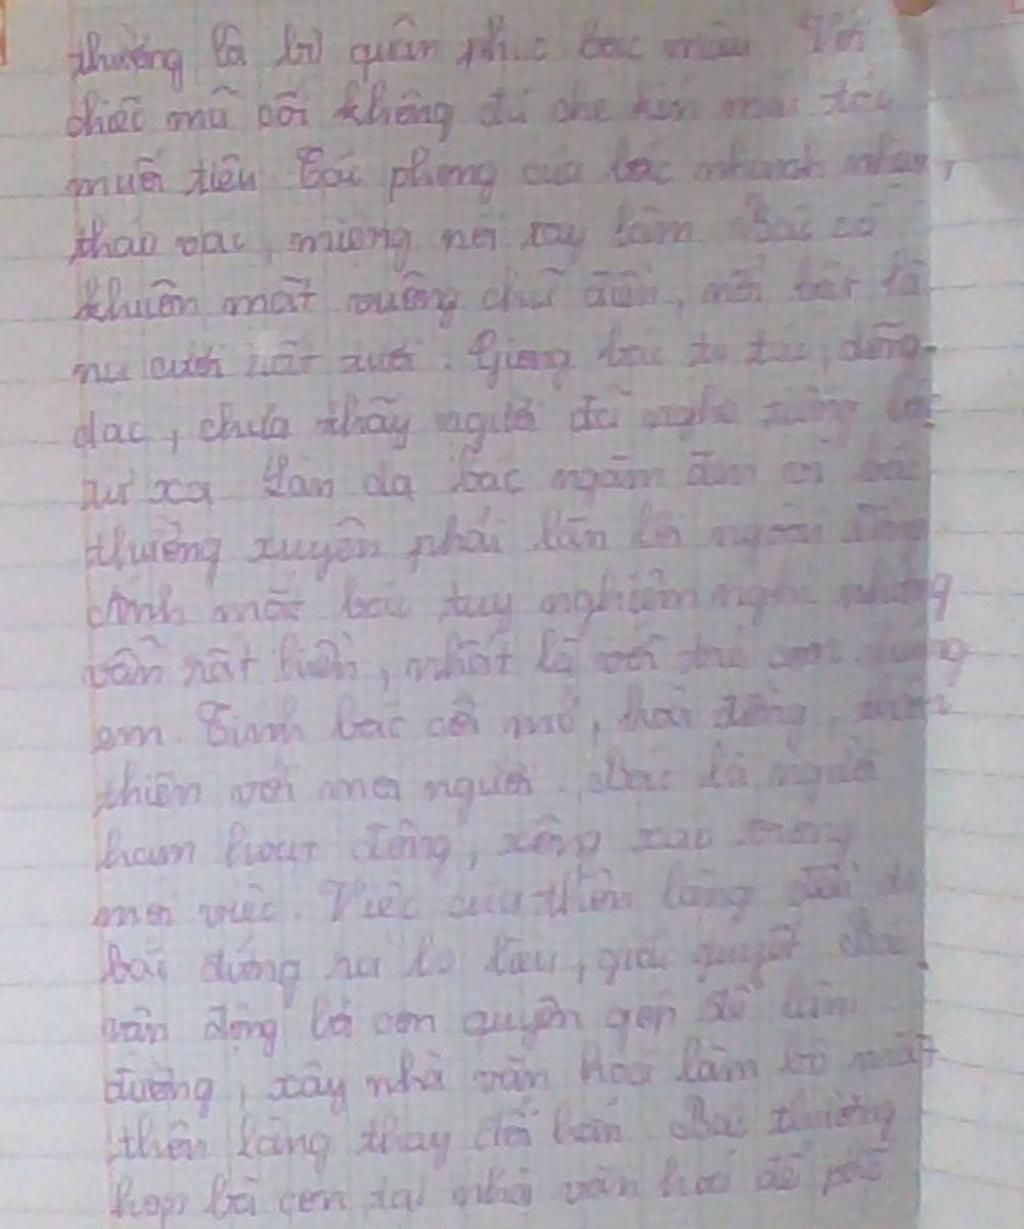 thường là bộ quân phục bạc màu. Với
chiếc mũ cối không đủ che kín mái tóc
muối tiêu. Tác phong của bác nhanh nhẹn,
tháo vác, miệng nói tay làm. Bác có
khuôn mặt vuông chữ điền, nổi bật là
nụ cười rất tươi. Giọng bác to tát, dõng
dạc, chưa thấy người đã nghe tiếng bác
từ xa. Làn da bác ngăm đen vì bác
thường xuyên phải lăn lộn ngoài đồng
Ánh mắt bác tuy nghiêm nghị nhưng
vẫn rất hiền, nhất là với trẻ con chúng
em. Tính bác cởi mở, hoà đồng, thân
thiện với mọi người. Bác là người
ham hoạt động, xông xáo trong
mọi việc. Việc của thôn làng đều do
bác đứng ra lo lậu, giải quyết. Bác
vận động bà con quyên góp để làm
đường, xây nhà văn hoá làm bộ mặt
thôn làng thay đổi hẳn. Bác thường
họp bà con tại nhà văn hoá để phổ